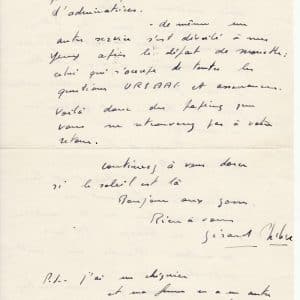 d'admiratrices.
- de même un
autre service s'est dévoilé à mes
yeux après le départ de
celui qui s'occupe de toutes les
questions URSSAF et assurances.
Voilà donc du
vous ne retrouverez pas à votre
retour.
Continuez à vous dorer
si le soleil est là
Bonjour aux gones
Bien à vous
Gérard
P.S. j'ai un
et ma femme en a un autre